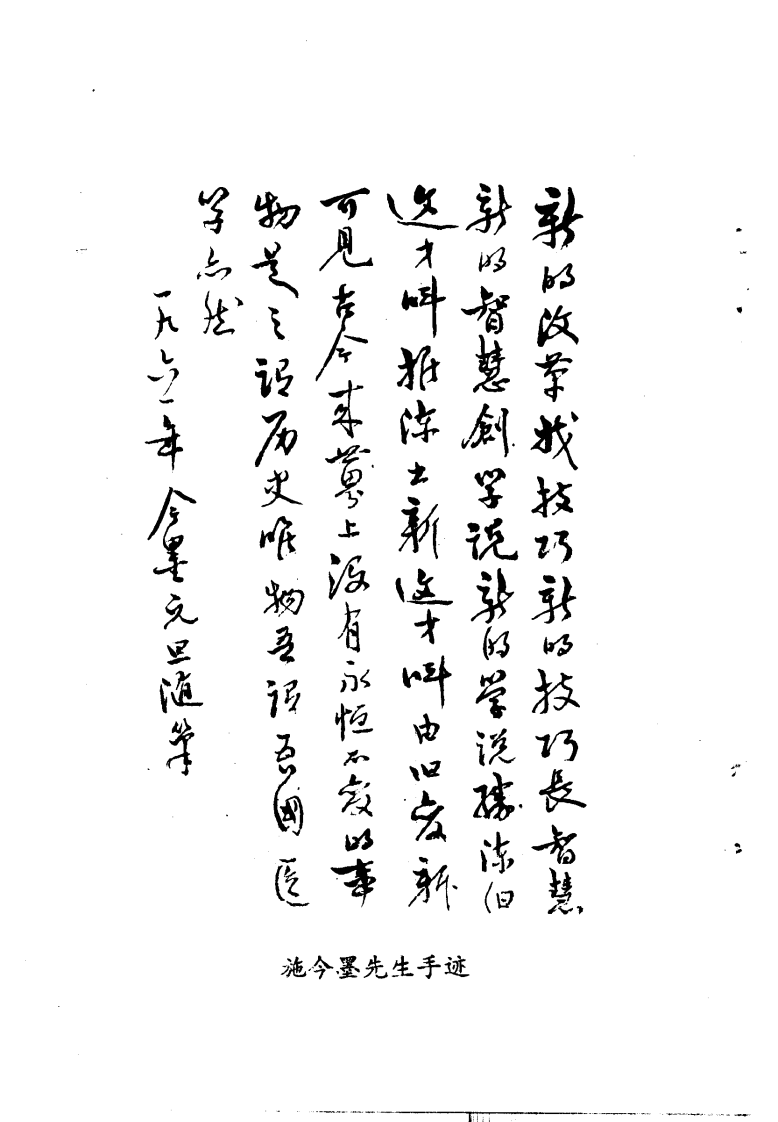 新的改革找技巧新的技巧長智慧
新的智慧創学说新的学说勝陈旧
这才叫推陈出新这才叫由旧变新
可見古今来世界上没有永恒不变的事
物是之谓历史唯物吾谓吾國医
学亦然
一九六一年今墨元旦随筆
施今墨先生手迹